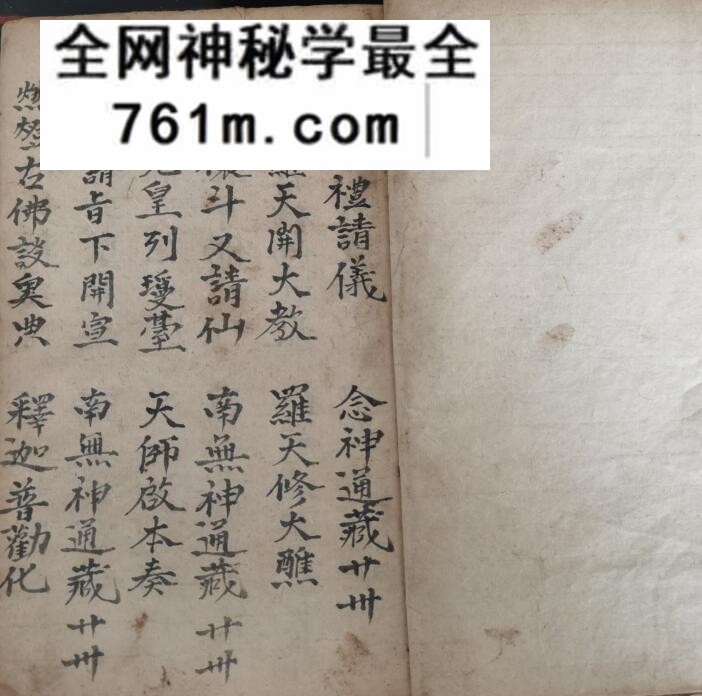 全网神秘学最全
761m.com
禮請儀 念神通藏廾卌
天開大教 羅天修大醮
斗又請仙 南無神通藏廾卌
皇列瓊臺 天師啟本奏
請旨下開宣 南無神通藏廾卌
燃燈古佛談奧典 釋迦普勸化